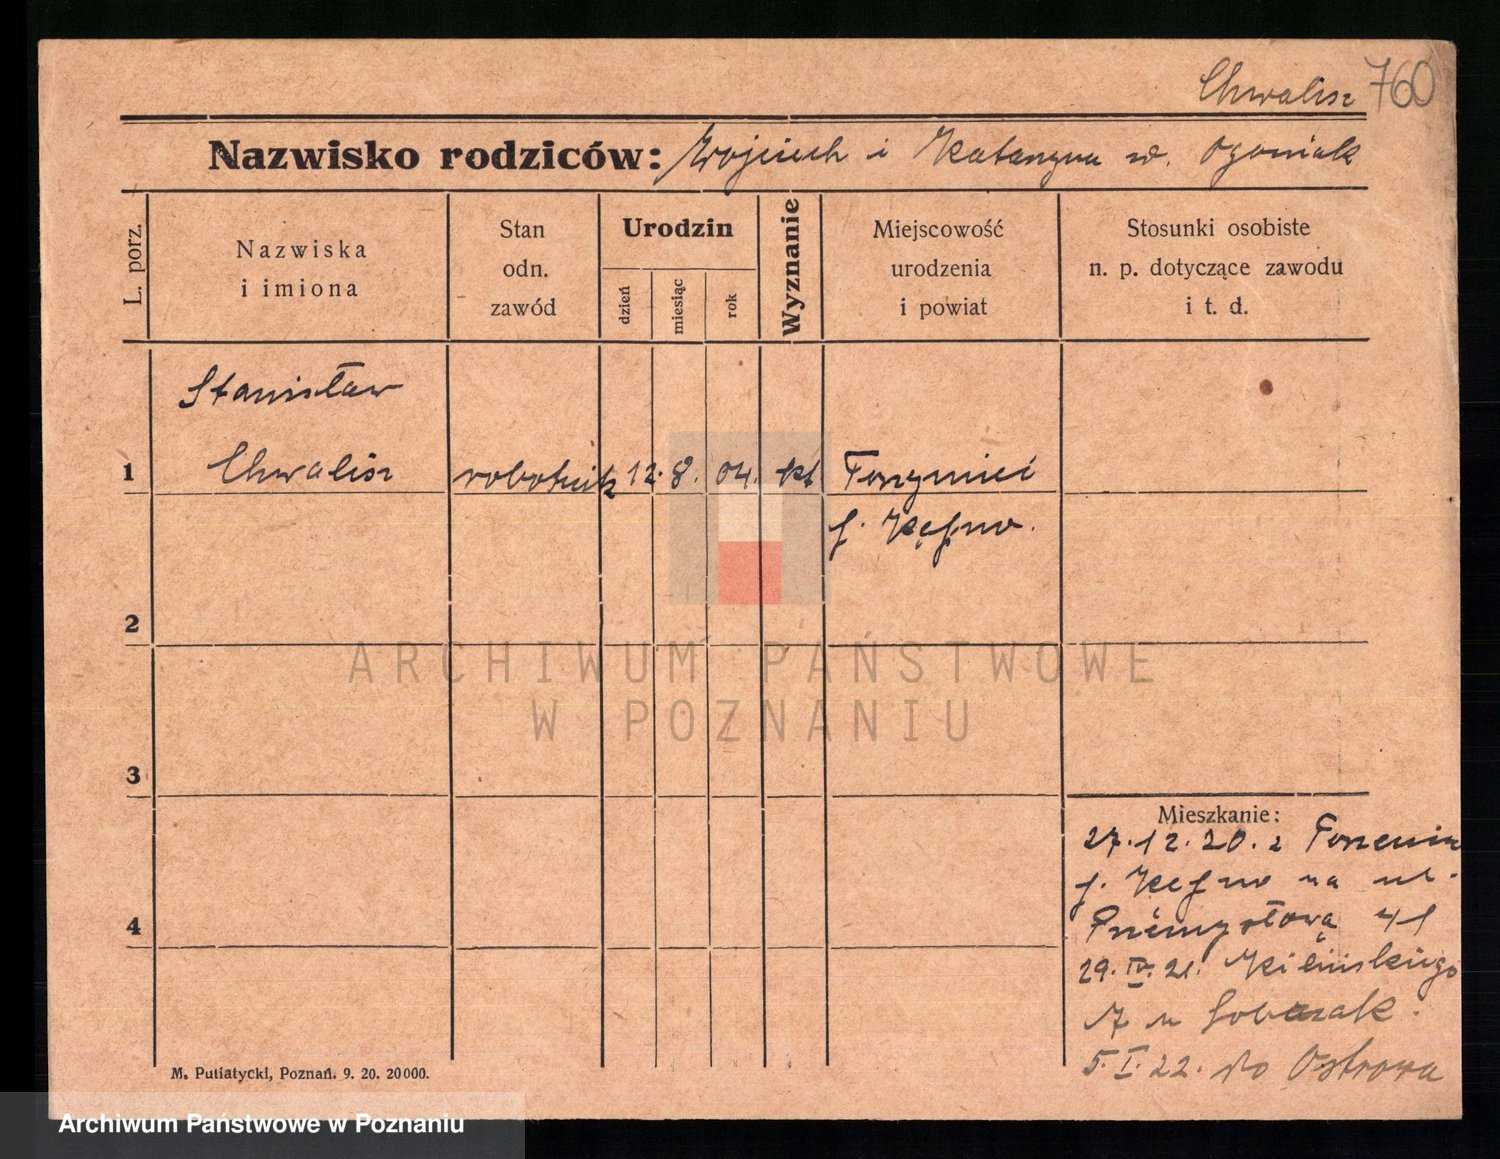 Chwalisz 760
Nazwisko rodziców: Wojciech i Katarzyna w. Ogoniak
L. porz.
Nazwiska
i imiona
Stan
odn.
zawód
Urodzin
dzień
miesiąc
rok
Wyznanie
Miejscowość
urodzenia
i powiat
Stosunki osobiste
n. p. dotyczące zawodu
i t. d.
Stanisław
1 Chwalisz robotnik 12. 8. 04. kt
Kępno.
2
ARCHIWUM PAŃSTWOWE
W POZNANIU
3
Mieszkanie:
27.12.20. z
Kępno na ul.
4 41
29.IV.21. Kilińskiego
7 u Sobczak.
5.I.22. do Ostrowa
M. Putiatycki, Poznań. 9. 20. 20000.
Archiwum Państwowe w Poznaniu